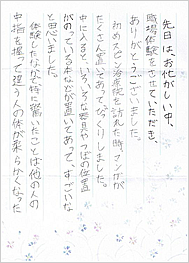 先日は、お忙しい中、
職場体験をさせていただき、
ありがとうございました。
初めスピン治療院を訪れた時マンガが
たくさん置いてあってびっくりしました。
中に入ると、いろいろな器具やつぼの位置
がのっている本などが置いてあって、すごいな
と思いました。
体験したなかで特に驚いたことは他の人の
中指を握って違う人の体が柔らかくなった